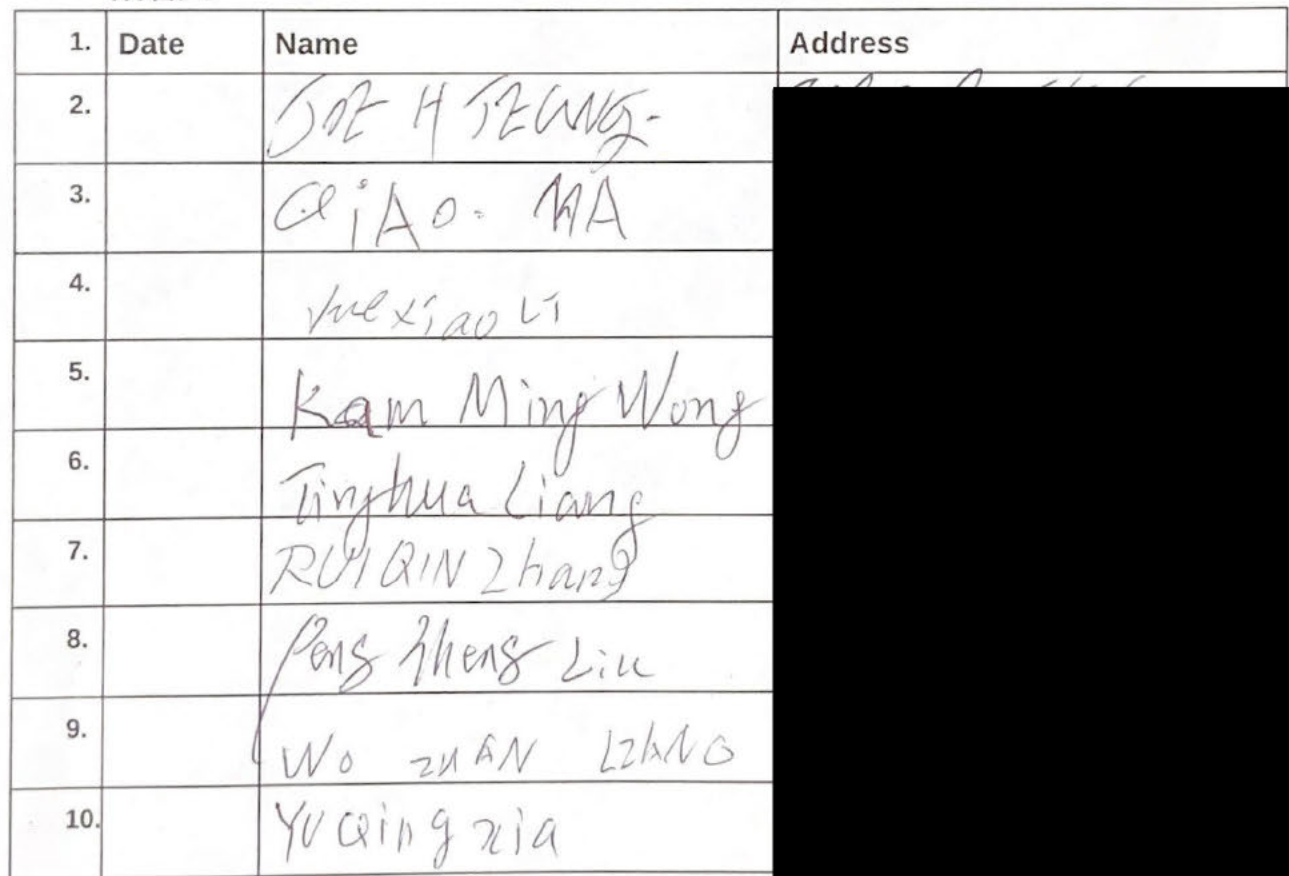 1. Date Name Address
2. JOE H TZEUNG-
3. QiAO. MA
4. Xiao Li
5. Kam Ming Wong
6. Tinghua Liang
7. RUIQIN Zhang
8. Peng Zheng Liu
9. Wo ZUAN
10. YU Qing xia